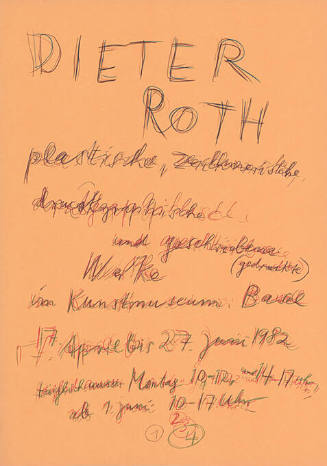 DIETER
ROTH
plastische, zeichnerische,
druckgraphische
und geschriebene
Werke (gedruckte)
im Kunstmuseum Basel
17. April bis 27. Juni 1982
täglich ausser Montag 10-12 und 14-17 Uhr
ab 1. Juni 10-17 Uhr